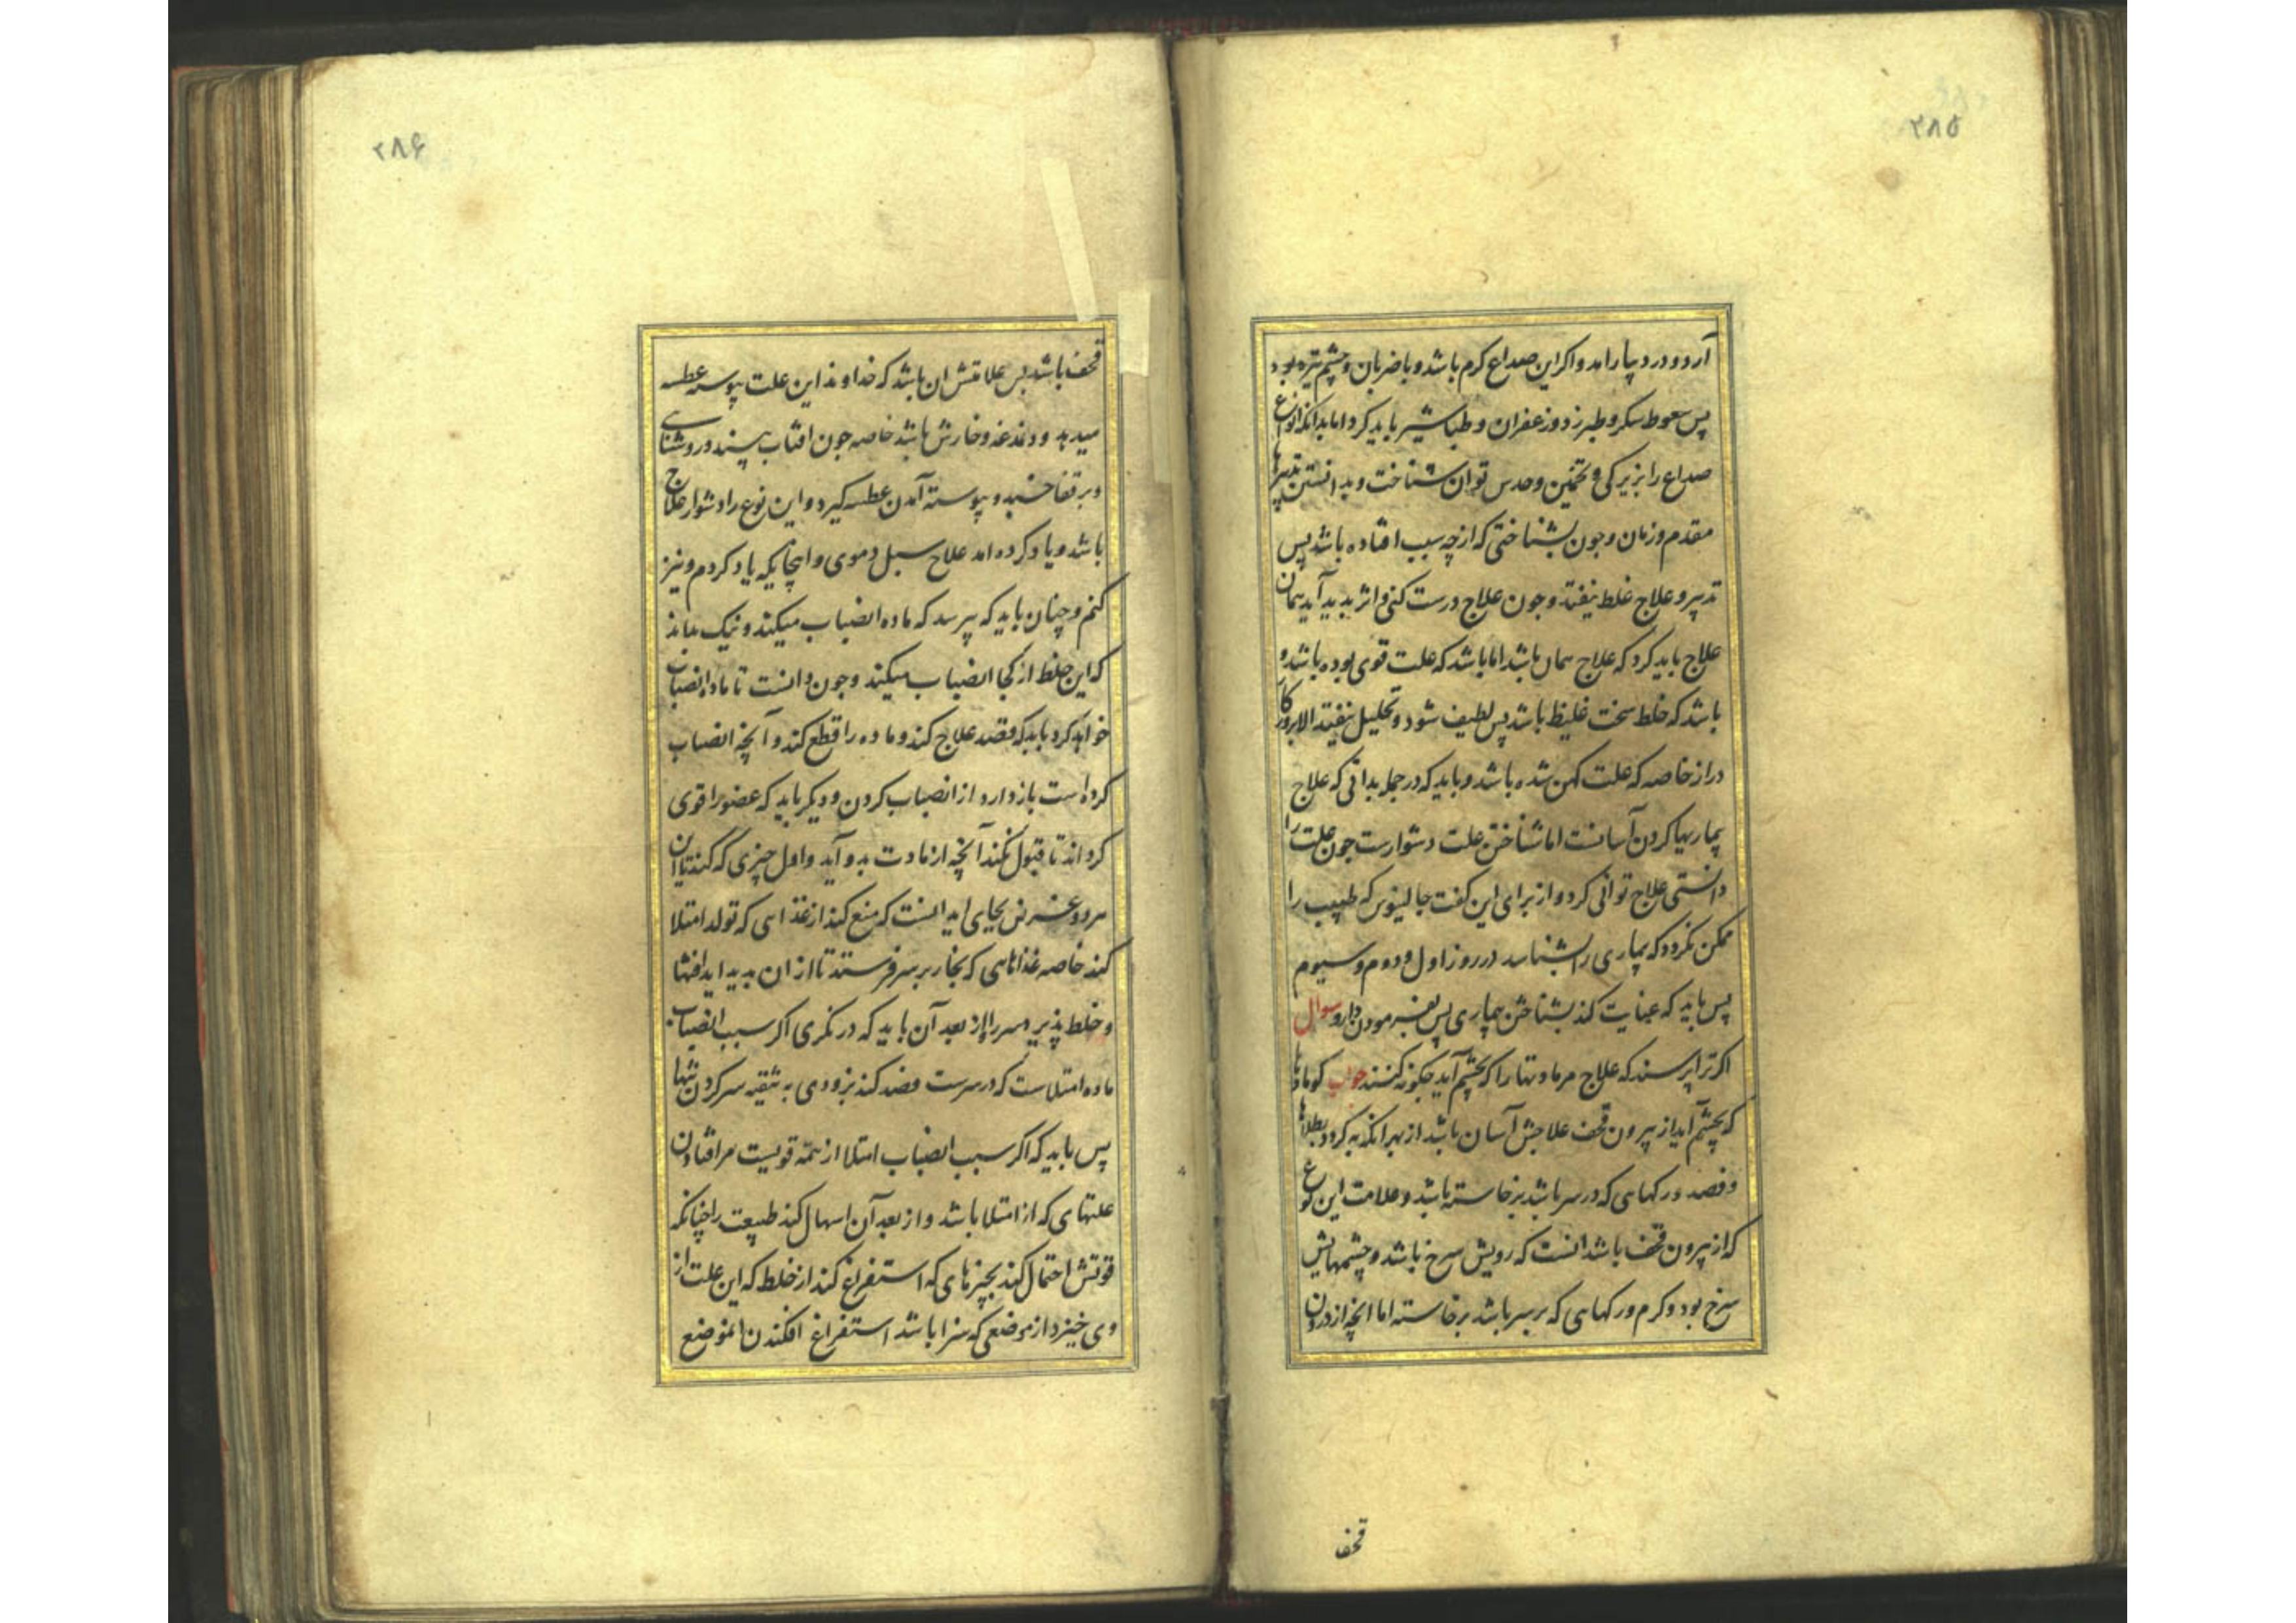 ۲۸۵
آرد و درد بیارامد و اکر این صداع کرم باشد و با ضربان و چشم تیره بود
پس سعوط سکر و طبرزد و زعفران و طباشیر باید کرد اما بدانکه انواع
صداع را بزیرکی و تخمین و حدس توان شناخت و بدانستن تدبیرها
مقدم و زمان و جون بشناختی که از چه سبب افتاده باشد پس
تدبیر و علاج غلط نیفتد و جون علاج درست کنی و اثر بدید آید همان
علاج باید کرد که علاج همان باشد اما باشد که علت قوی بوده باشد و
باشد که خلط سخت غلیظ باشد پس لطیف شود و تحلیل نیفتد الا بروزکار
دراز خاصه که علت کهن شده باشد و باید که در جمله بدانی که علاج
بیماریها کردن آسانست اما شناختن علت دشوارست جون علت را
دانستی علاج توانی کرد و از برای این کفت جالینوس که طبیب را
ممکن نکردد که بیماری را بشناسد در روز اول و دوم و سیوم
پس باید که عنایت کند بشناختن بیماری پس بفرمودن دارو سوال
اکر ترا پرسند که علاج مر مادتها را که بچشم آید جکونه کنند جواب کو مادتها
که بچشم آید از بیرون قحف علاجش آسان باشد از بهر آنکه به کردد بطلاها
و فصد و رکهایی که در سر باشد برخاسته باشد و علامت این نوع
که از بیرون قحف باشد انست که رویش سرخ باشد و چشمهایش
سرخ بود و کرم و رکهایی که بر سر باشد برخاسته اما انچه از درون
قحف
۲۸۶
قحف باشد پس علامتش ان باشد که خداوند این علت پیوسته عطسه
میدهد و دغدغه و خارش باشد خاصه جون افتاب بیند و روشنایی
و بر قفا خسبد و پیوسته آمدن عطسه کیرد و این نوع را دشوار علاج
باشد و یاد کرده امد علاج سبل دموی و اینجایکه یاد کردم و نیز
کنم و چنان باید که بپرسد که ماده انصباب میکند و نیک بداند
که این خلط از کجا انصباب میکند و جون دانست تا ماده انصباب
خواهد کرد باید که قصد علاج کند و ماده را قطع کند و آنچه انصباب
کرده است باز دارد از انصباب کردن و دیکر باید که عضو را قوی
کرداند تا قبول نکند آنچه از مادت بدو آید و اول چیزی که کند تا ان
هر دو غرض بجای اید انست که منع کند از غذاایی که تولد امتلا
کند خاصه غذاهایی که بخار بر سر فرستد تا از ان بدید اید افتها
و خلط پذیرد سر را از بعد آن باید که در نکری اکر سبب انصباب
ماده امتلاست که در سرست قصد کند بزودی به تنقیه سر کردن تنها
پس باید که اکر سبب انصباب امتلا از همه قویست مر افتادن
علتهایی که از امتلا باشد و از بعد آن اسهال کند طبیعت را چنانکه
قوتش احتمال کند بچیزهایی که استفراغ کند از خلط که این علت از
وی خیزد از موضعی که سزا باشد استفراغ افکندن انموضع